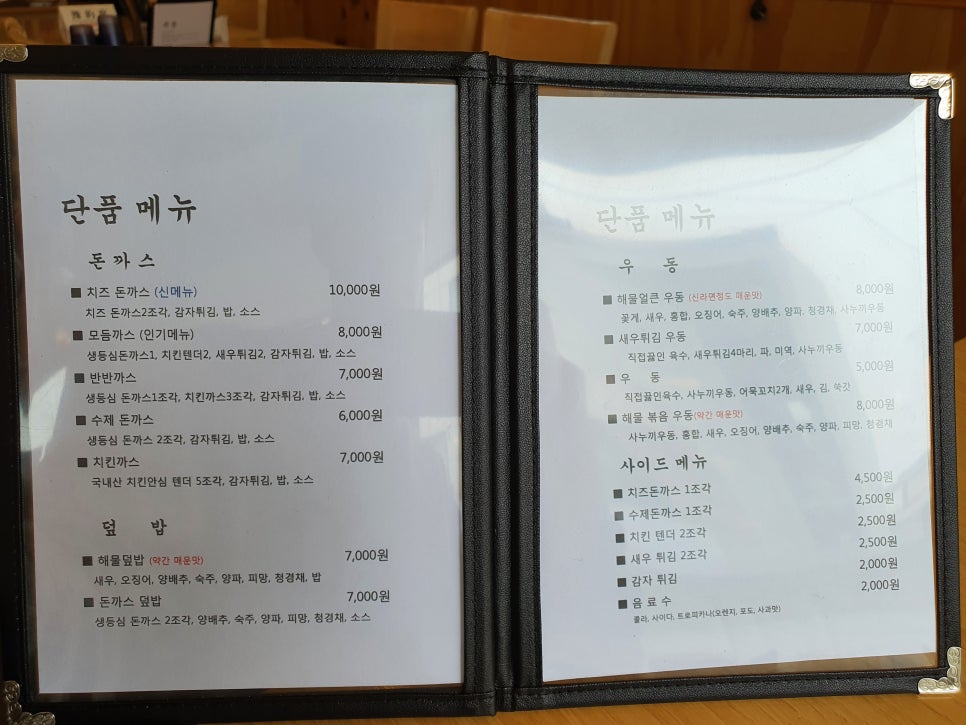 단품 메뉴
돈 까 스
■ 치즈 돈까스 (신메뉴) 10,000원
치즈 돈까스2조각, 감자튀김, 밥, 소스
■ 모듬까스 (인기메뉴) 8,000원
생등심돈까스1, 치킨텐더2, 새우튀김2, 감자튀김, 밥, 소스
■ 반반까스 7,000원
생등심 돈까스1조각, 치킨까스3조각, 감자튀김, 밥, 소스
■ 수제 돈까스 6,000원
생등심 돈까스 2조각, 감자튀김, 밥, 소스
■ 치킨까스 7,000원
국내산 치킨안심 텐더 5조각, 감자튀김, 밥, 소스
덮 밥
■ 해물덮밥 (약간 매운맛) 7,000원
새우, 오징어, 양배추, 숙주, 양파, 피망, 청경채, 밥
■ 돈까스 덮밥 7,000원
생등심 돈까스 2조각, 양배추, 숙주, 양파, 피망, 청경채, 소스
단품 메뉴
우 동
■ 해물얼큰 우동 (신라면정도 매운맛) 8,000원
꽃게, 새우, 홍합, 오징어, 숙주, 양배추, 양파, 청경채, 사누끼우동
■ 새우튀김 우동 7,000원
직접끓인 육수, 새우튀김4마리, 파, 미역, 사누끼우동
■ 우 동 5,000원
직접끓인육수, 사누끼우동, 어묵꼬치2개, 새우, 김, 쑥갓
■ 해물 볶음 우동(약간 매운맛) 8,000원
사누끼우동, 홍합, 새우, 오징어, 양배추, 숙주, 양파, 피망, 청경채
사이드 메뉴
■ 치즈돈까스 1조각 4,500원
■ 수제돈까스 1조각 2,500원
■ 치킨 텐더 2조각 2,500원
■ 새우 튀김 2조각 2,500원
■ 감자 튀김 2,000원
■ 음 료 수 2,000원
콜라, 사이다, 트로피카나(오렌지, 포도, 사과맛)